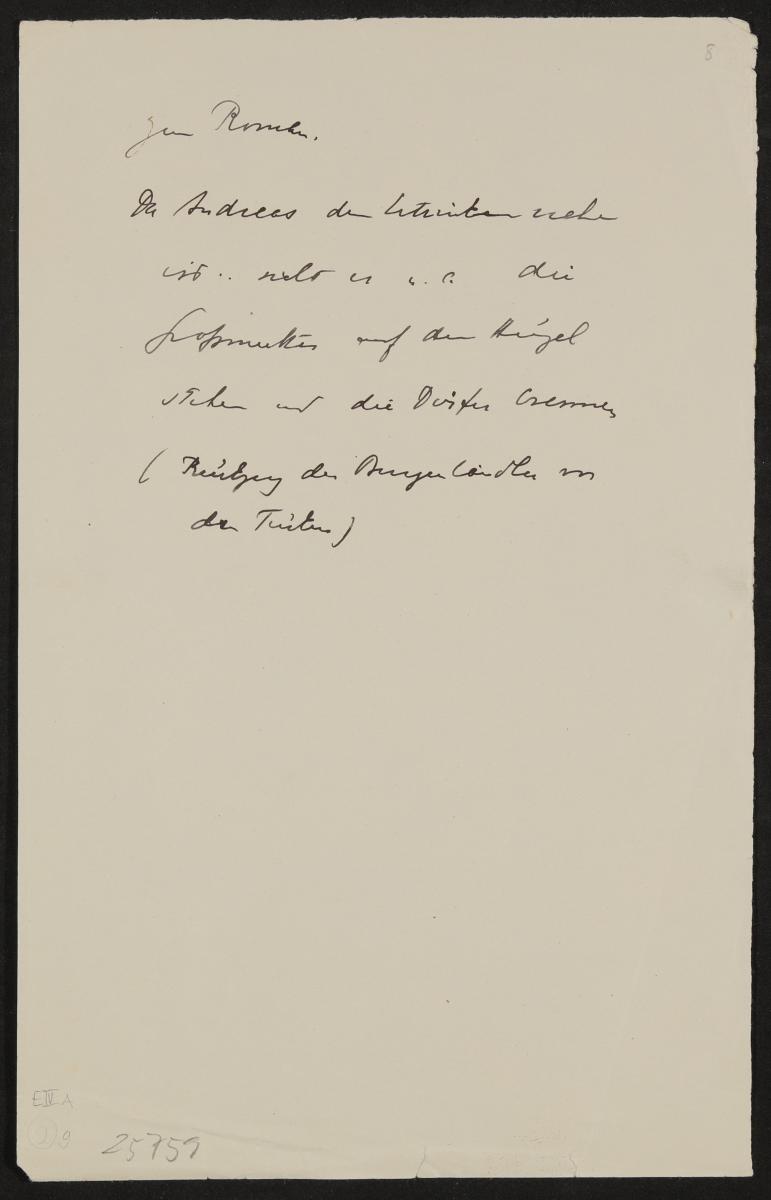 8
Zum Roman.
Da Andreas dem Ertrinken nahe
ist .. sieht er u. a. die
Grossmutter auf dem Hügel
stehen und die Dörfer brennen
( Rückzug der Burgenländler vor
den Türken )
E IV A
9
25759